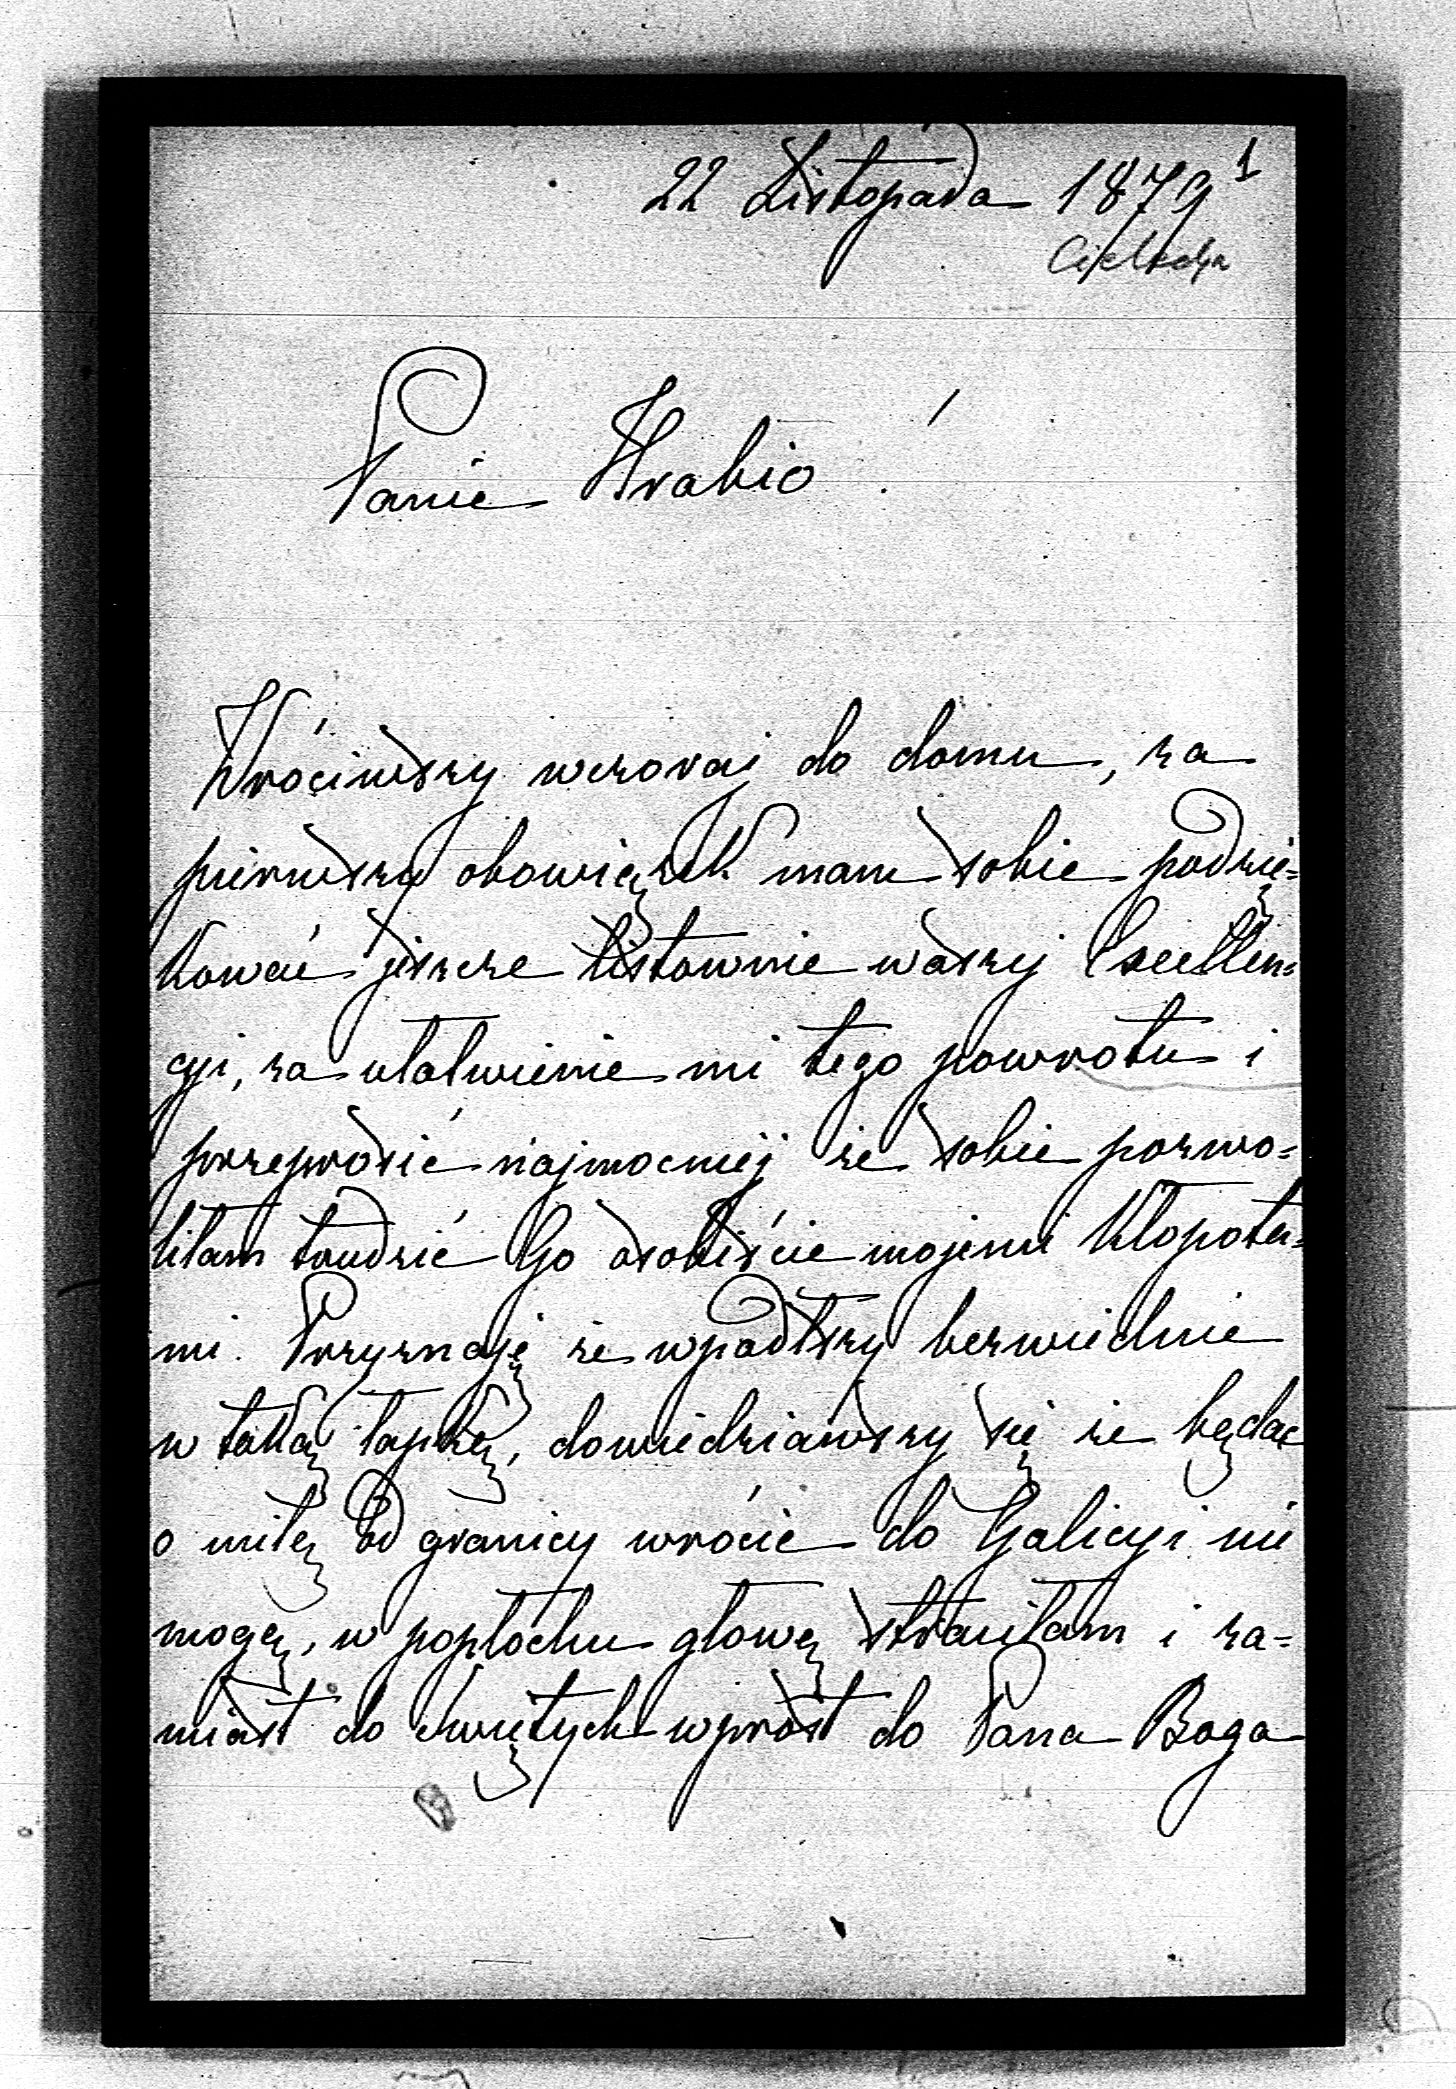 22 Listopada 1879
1
Panie Hrabio!
Wróciwszy wczoraj do domu, za
pierwszy obowiązek mam sobie podzię=
kować jeszcze listownie waszej Excellen=
cyi, za ułatwienie mi tego powrotu i
przeprosić najmocniej że sobie pozwo=
liłam trudzić Go osobiście mojemi kłopota=
mi. Przyznaję że wpadłszy bezwiednie
w taką łapkę, dowiedziawszy się że będąc
o milę od granicy wrócić do Galicyi nie
mogę, w popłochu głowę straciłam i za=
miast do świętych wprost do Pana Boga